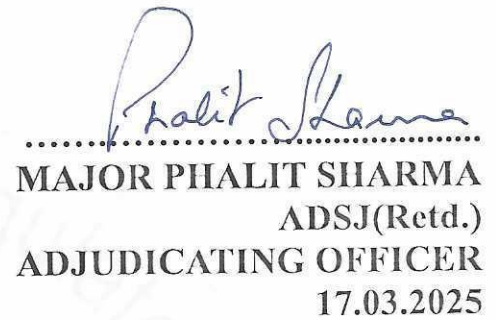 Phalit Sharma
................................................
MAJOR PHALIT SHARMA
ADSJ(Retd.)
ADJUDICATING OFFICER
17.03.2025